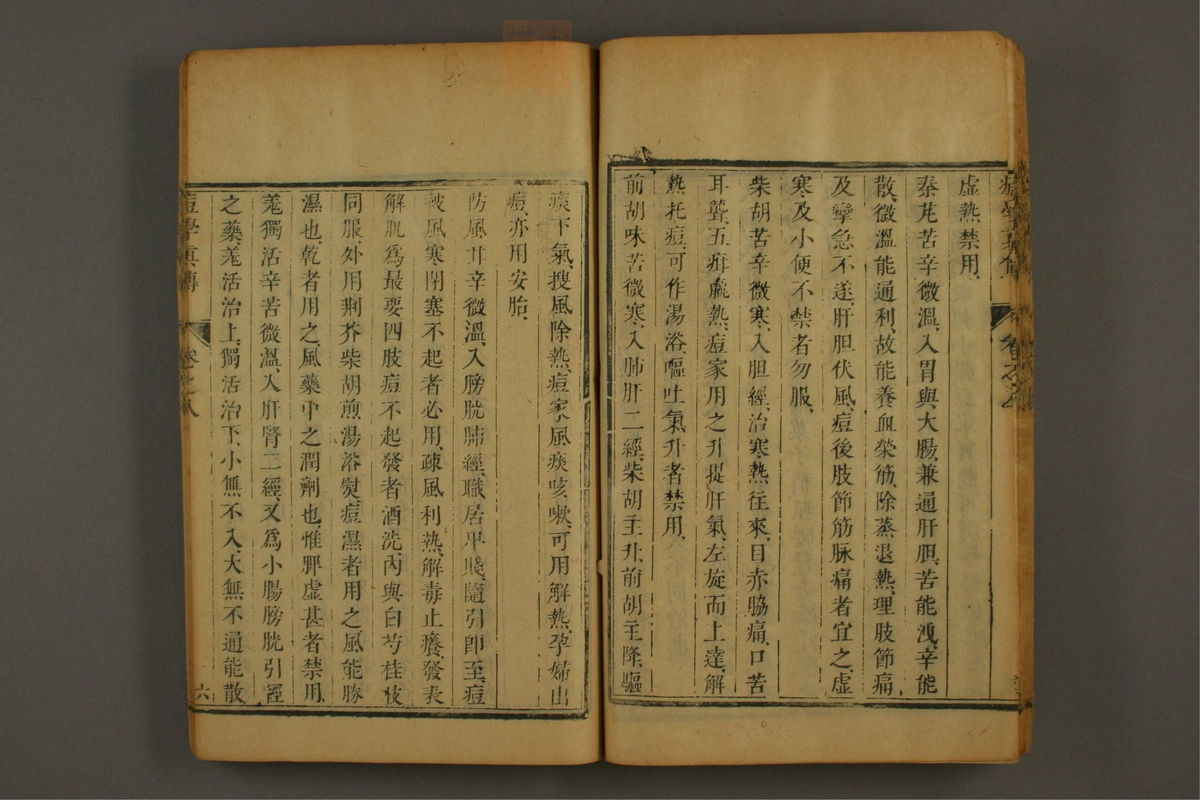 虛熱禁用、
秦艽苦辛微溫、入胃與大腸、兼通肝胆、苦能洩、辛能
散、微溫能通利、故能養血榮筋、除蒸退熱、理肢節痛
及攣急不遂、肝胆伏風、痘後肢節筋脉痛者宜之、虛
寒及小便不禁者勿服、
柴胡苦辛微寒、入胆經、治寒熱往來、目赤脇痛、口苦
耳聾、五疳羸熱、痘家用之升提肝氣、左旋而上達、解
熱托痘、可作湯浴、嘔吐氣升者禁用、
前胡味苦微寒、入肺肝二經、柴胡主升、前胡主降、驅
痰下氣、搜風除熱、痘家風痰咳嗽、可用解熱、孕婦出
痘、亦用安胎、
防風甘辛微溫、入膀胱肺經、職居卑賤、隨引即至、痘
被風寒閉塞不起者必用、疎風利熱、解毒止癢、發表
解肌爲最要、四肢痘不起發者酒洗、內與白芍桂枝
同服、外用荆芥柴胡煎湯浴熨、痘濕者用之、風能勝
濕也、乾者用之、風藥中之潤劑也、惟脾虛甚者禁用、
羗獨活辛苦微溫、入肝腎二經、又爲小腸膀胱引經
之藥、羗活治上、獨活治下、小無不入、大無不通、能散
痘學眞傳 卷之八 六